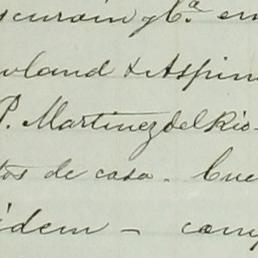 y Ca. en
wland & Aspin
P. Martinez del Rio
tos de casa. Cue
idem - comp